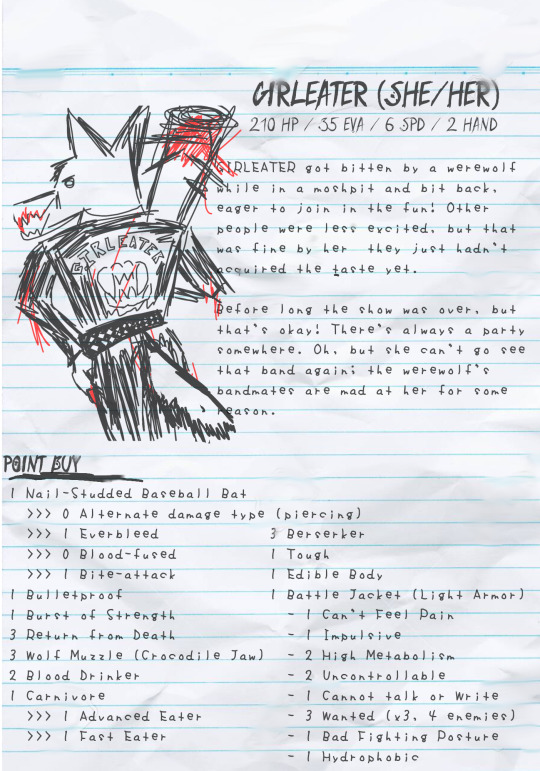 GIRLEATER (SHE/HER)
210 HP / 35 EVA / 6 SPD / 2 HAND
GIRLEATER got bitten by a werewolf
while in a moshpit and bit back,
eager to join in the fun! Other
people were less excited, but that
was fine by her they just hadn't
acquired the taste yet.
Before long the show was over, but
that's okay! There's always a party
somewhere. Oh, but she can't go see
that band again; the werewolf's
bandmates are mad at her for some
reason.
GIRLEATER
POINT BUY
1 Nail-Studded Baseball Bat
>>> 0 Alternate damage type (piercing)
>>> 1 Everbleed
>>> 0 Blood-fused
>>> 1 Bite-attack
1 Bulletproof
1 Burst of Strength
3 Return from Death
3 Wolf Muzzle (Crocodile Jaw)
2 Blood Drinker
1 Carnivore
>>> 1 Advanced Eater
>>> 1 Fast Eater
3 Berserker
1 Tough
1 Edible Body
1 Battle Jacket (Light Armor)
- 1 Can't Feel Pain
- 1 Impulsive
- 2 High Metabolism
- 2 Uncontrollable
- 1 Cannot talk or Write
- 3 Wanted (x3, 4 enemies)
- 1 Bad Fighting Posture
- 1 Hydrophobic